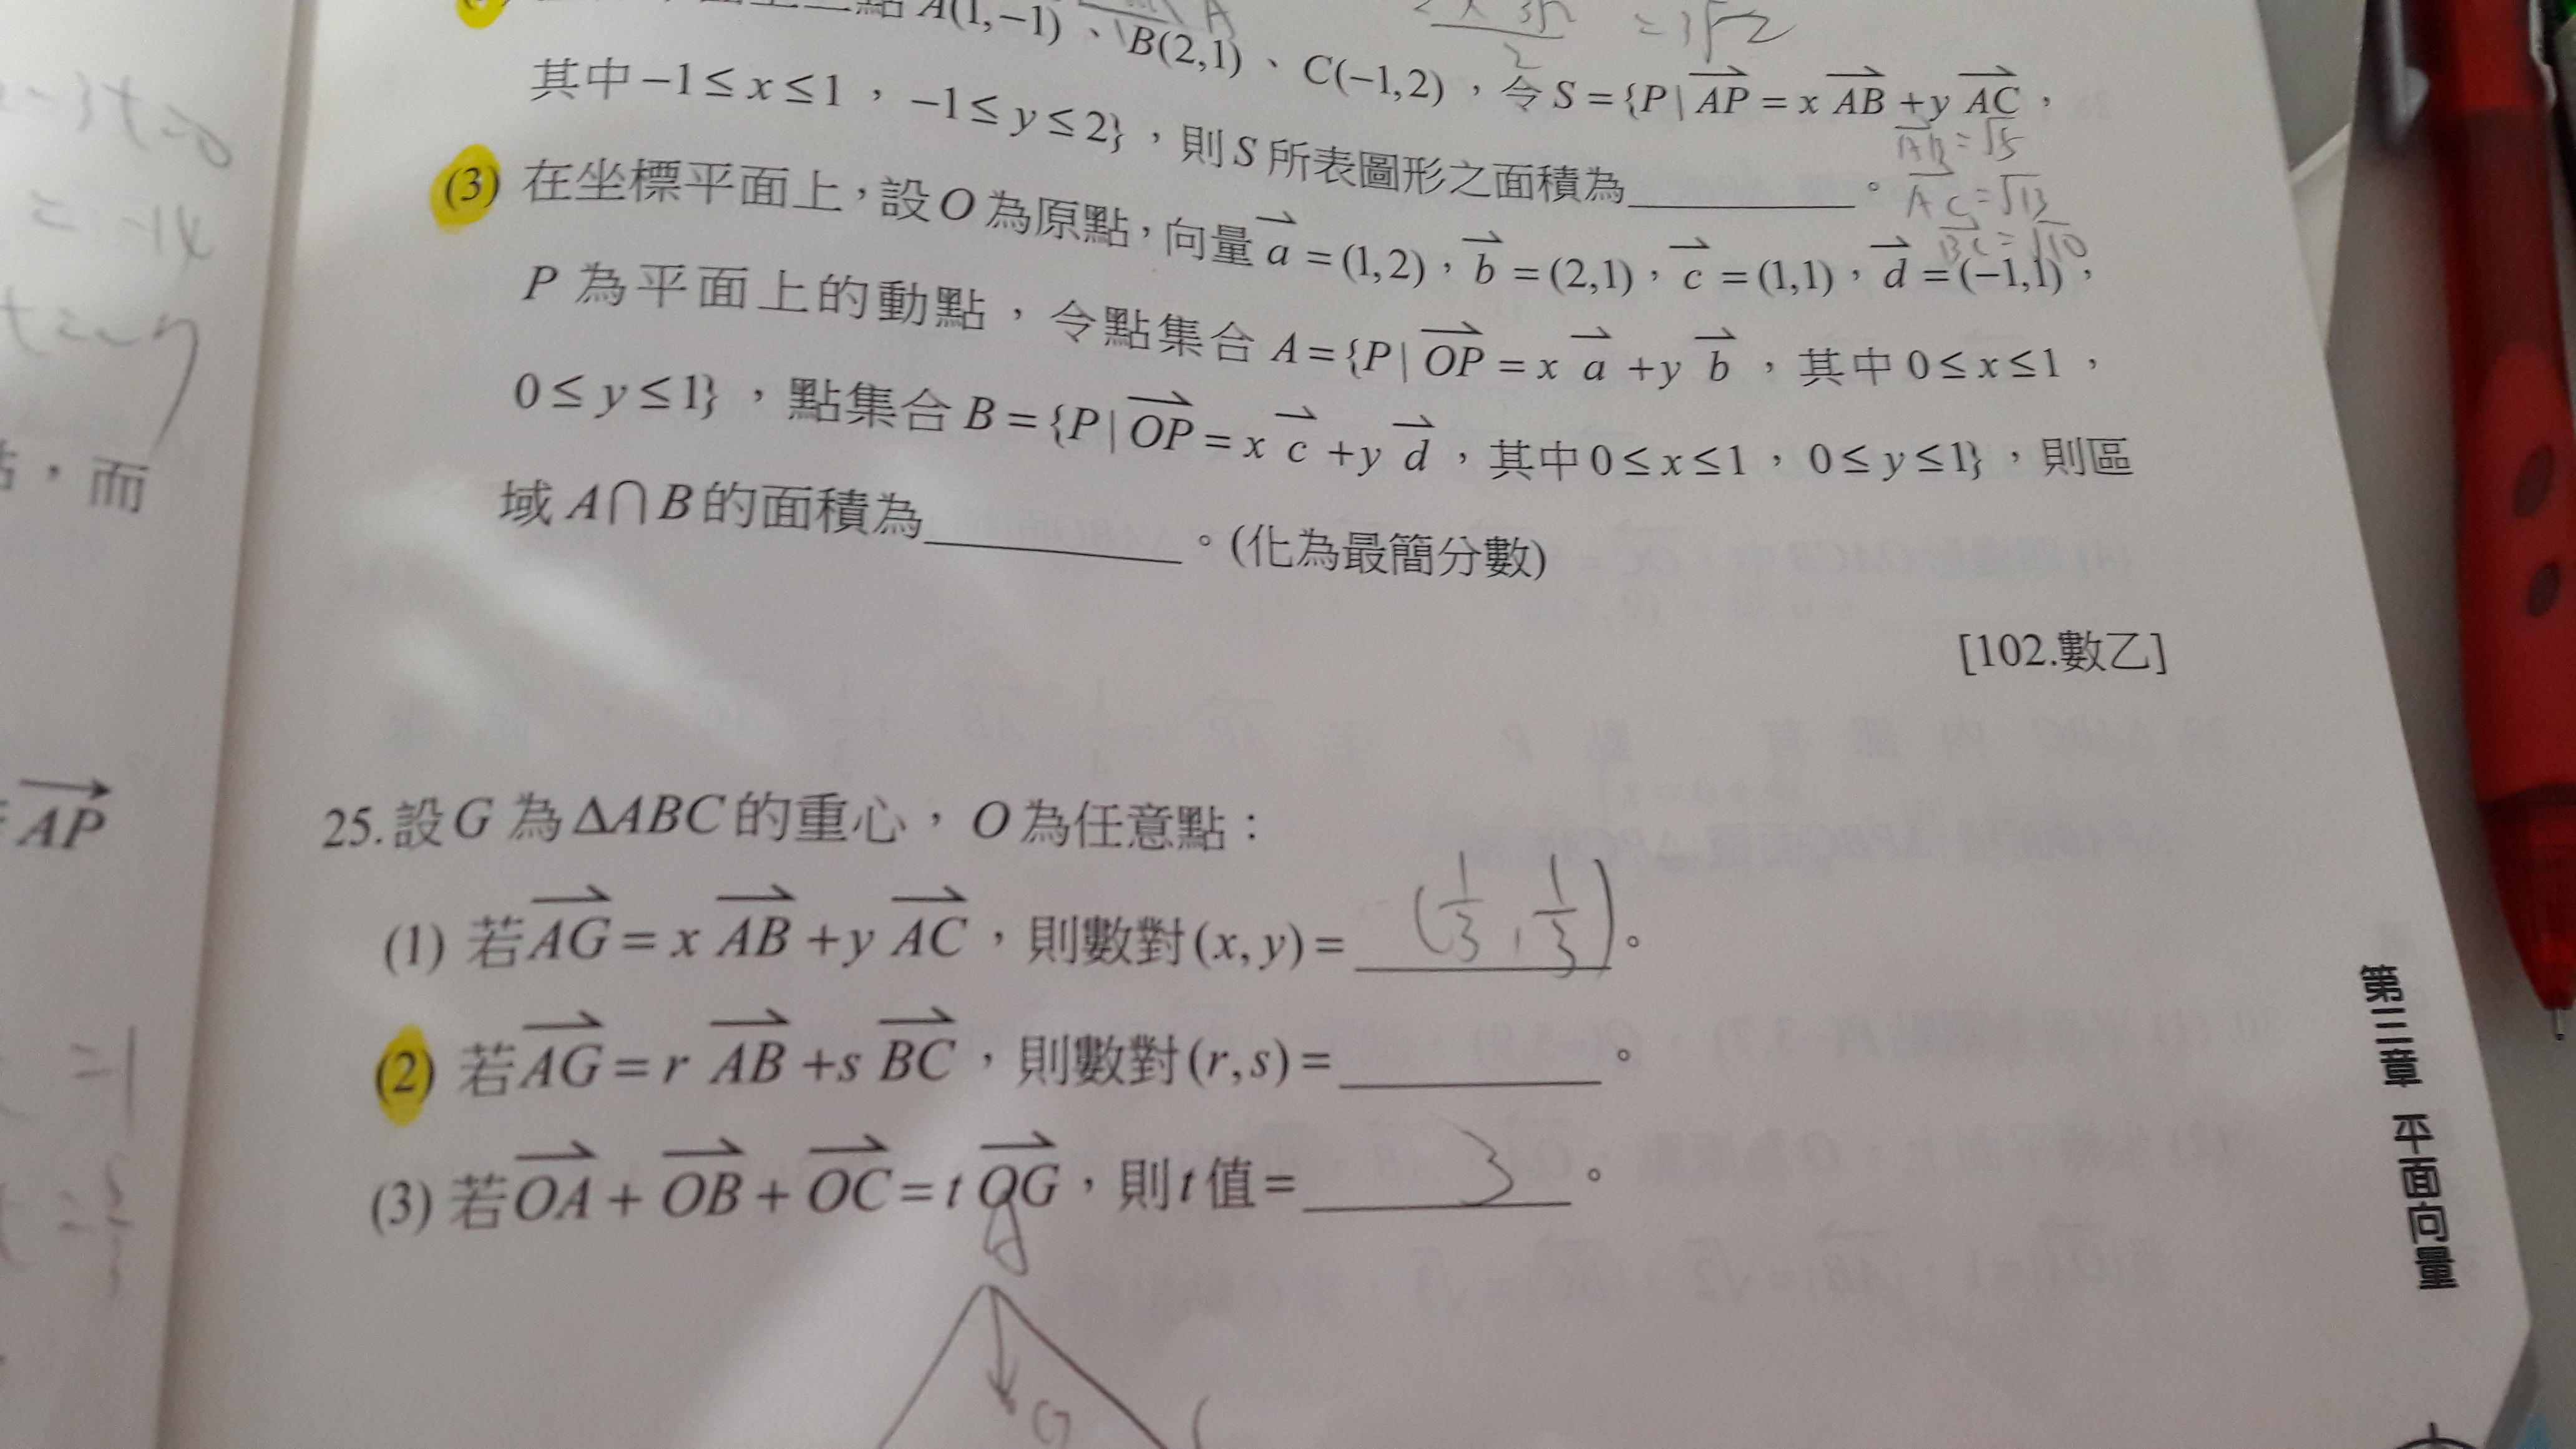 A(1,−1)、B(2,1)、C(−1,2)，令 S={P| AP = x AB + y AC，
其中 −1≤x≤1，−1≤y≤2}，則 S 所表圖形之面積為＿＿＿＿。
= 3√2
AB = √5
AC = √13
BC = √10
(3) 在坐標平面上，設 O 為原點，向量 a = (1,2)，b = (2,1)，c = (1,1)，d = (−1,1)，
P 為平面上的動點，令點集合 A={P| OP = x a + y b，其中 0≤x≤1，
0≤y≤1}，點集合 B={P| OP = x c + y d，其中 0≤x≤1，0≤y≤1}，則區
域 A∩B 的面積為＿＿＿＿。(化為最簡分數)
[102.數乙]
25. 設 G 為 ΔABC 的重心，O 為任意點：
(1) 若 AG = x AB + y AC，則數對 (x,y) = (1/3, 1/3)。
(2) 若 AG = r AB + s BC，則數對 (r,s) = ＿＿＿＿。
(3) 若 OA + OB + OC = t OG，則 t 值 = 3。
A
G
而
AP
= −14
=1
第三章 平面向量